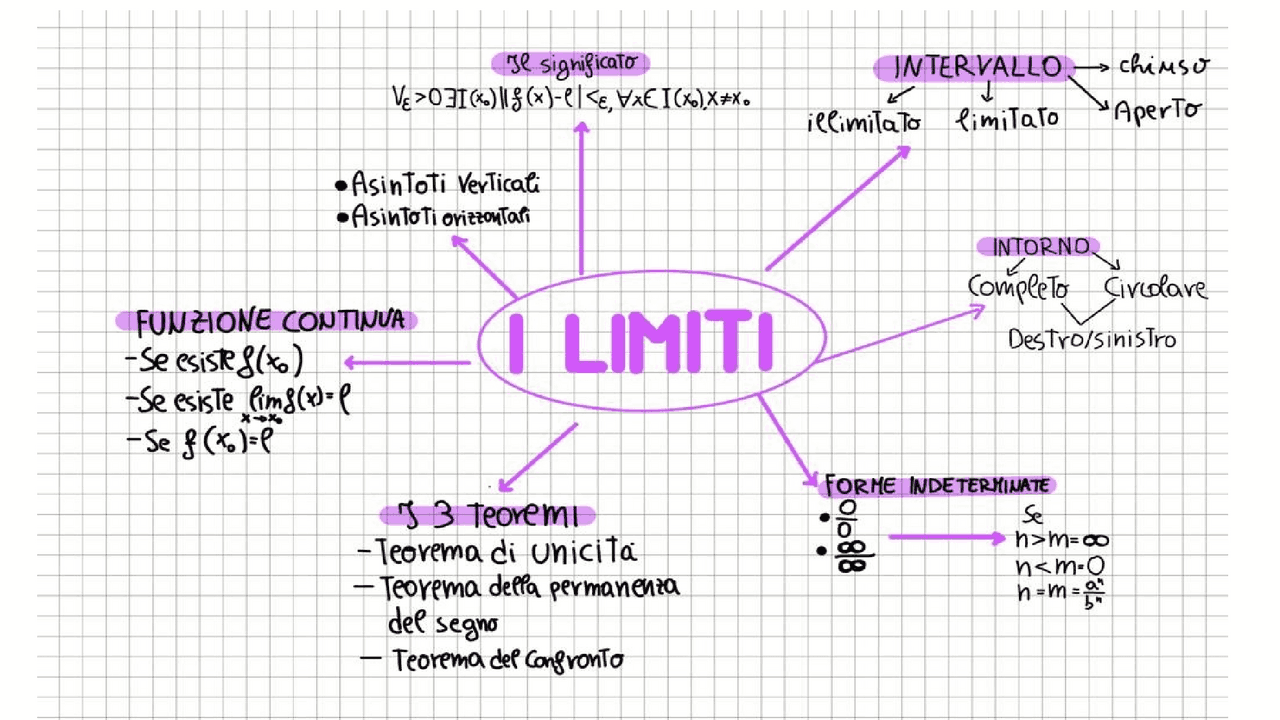 Il significato
∀ε>0∃I(x₀)||f(x)-l|<ε,∀x∈I(x₀),x≠x₀
INTERVALLO
chiuso
Aperto
illimitato
limitato
• Asintoti Verticali
• Asintoti orizzontali
INTORNO
Completo
Circolare
Destro/sinistro
I LIMITI
FUNZIONE CONTINUA
-Se esiste f(x₀)
-Se esiste lim f(x)=l
x→x₀
-Se f(x₀)=l
I 3 Teoremi
-Teorema di unicità
-Teorema della permanenza
del segno
- Teorema del Confronto
FORME INDETERMINATE
• 0/0
• ∞/∞
Se
n>m=∞
n<m=0
n=m=aⁿ/bⁿ